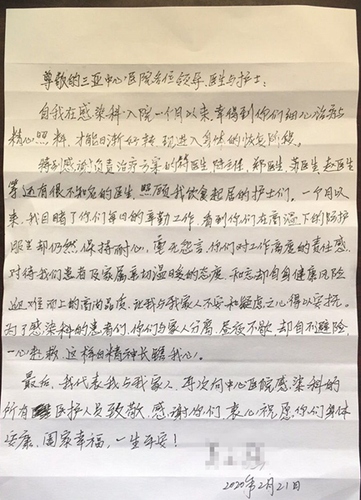 尊敬的三亚中心医院各位领导、医生与护士:
自我在感染科入院一个月以来，幸得到你们细心治疗与
精心照料，才能日渐好转，现进入自体的恢复阶段。
特别感谢负责治疗方案的 医生 陆主任，郑医生，苏医生，赵医生
等 还有很多不知名的医生，照顾我饮食起居的护士们。一个月以
来，我目睹了你们每日的辛勤工作，看到你们在高温下的防护
服里却仍然保持耐心，毫无怨言，你们对工作高度的责任感，
对待我们患者及家属亲切温暖的态度，和忘却自身健康风险
迎难而上的高尚品质，让我与我家人不安和疑虑之心得以安抚。
为了感染科的患者们，你们与家人分离，昼夜不歇，却自不避险，
一心救赦，这样的精神长驻我心。
最后，我代表我与我家人，再次向中心医院感染科的
所有 医护人员致敬，感谢你们，衷心祝愿你们身体
安康，阖家幸福，一生平安！
2020年2月21日